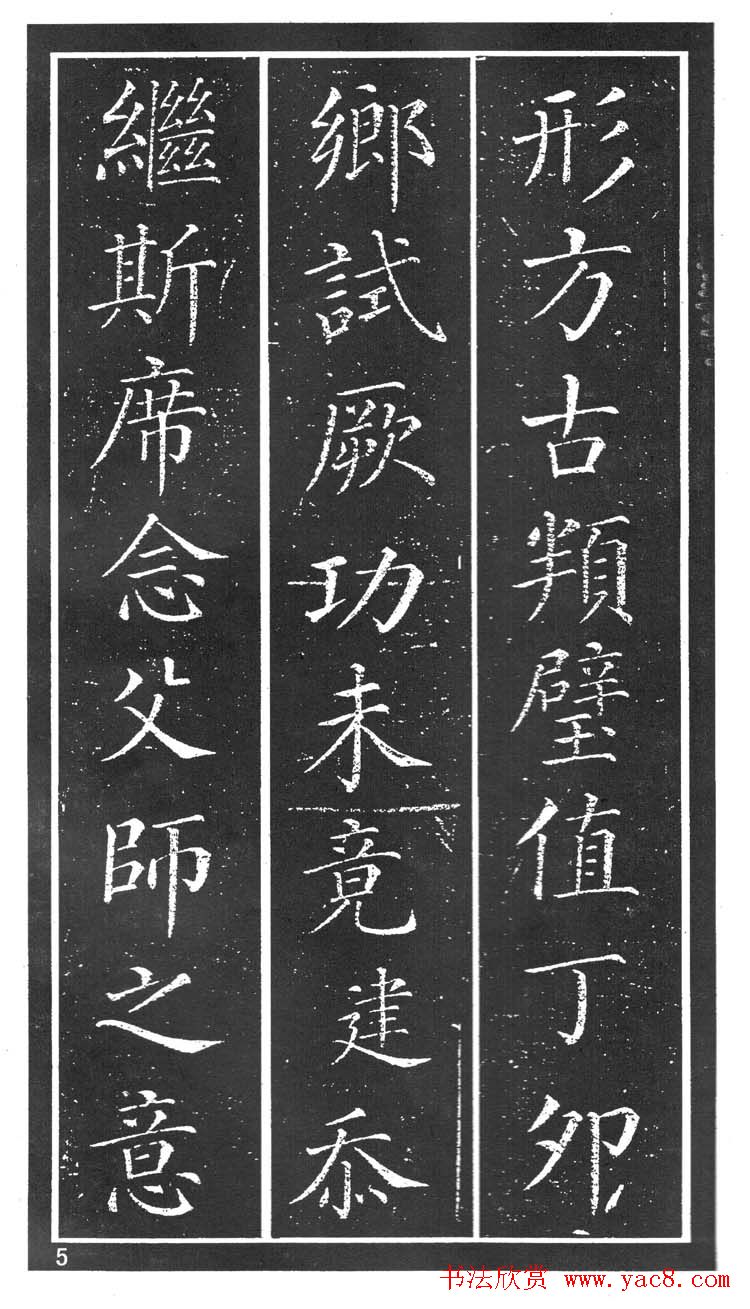 形方古頖璧值丁卯
鄉試厥功未竟建忝
繼斯席念父師之意
5
书法欣赏 www.yac8.com